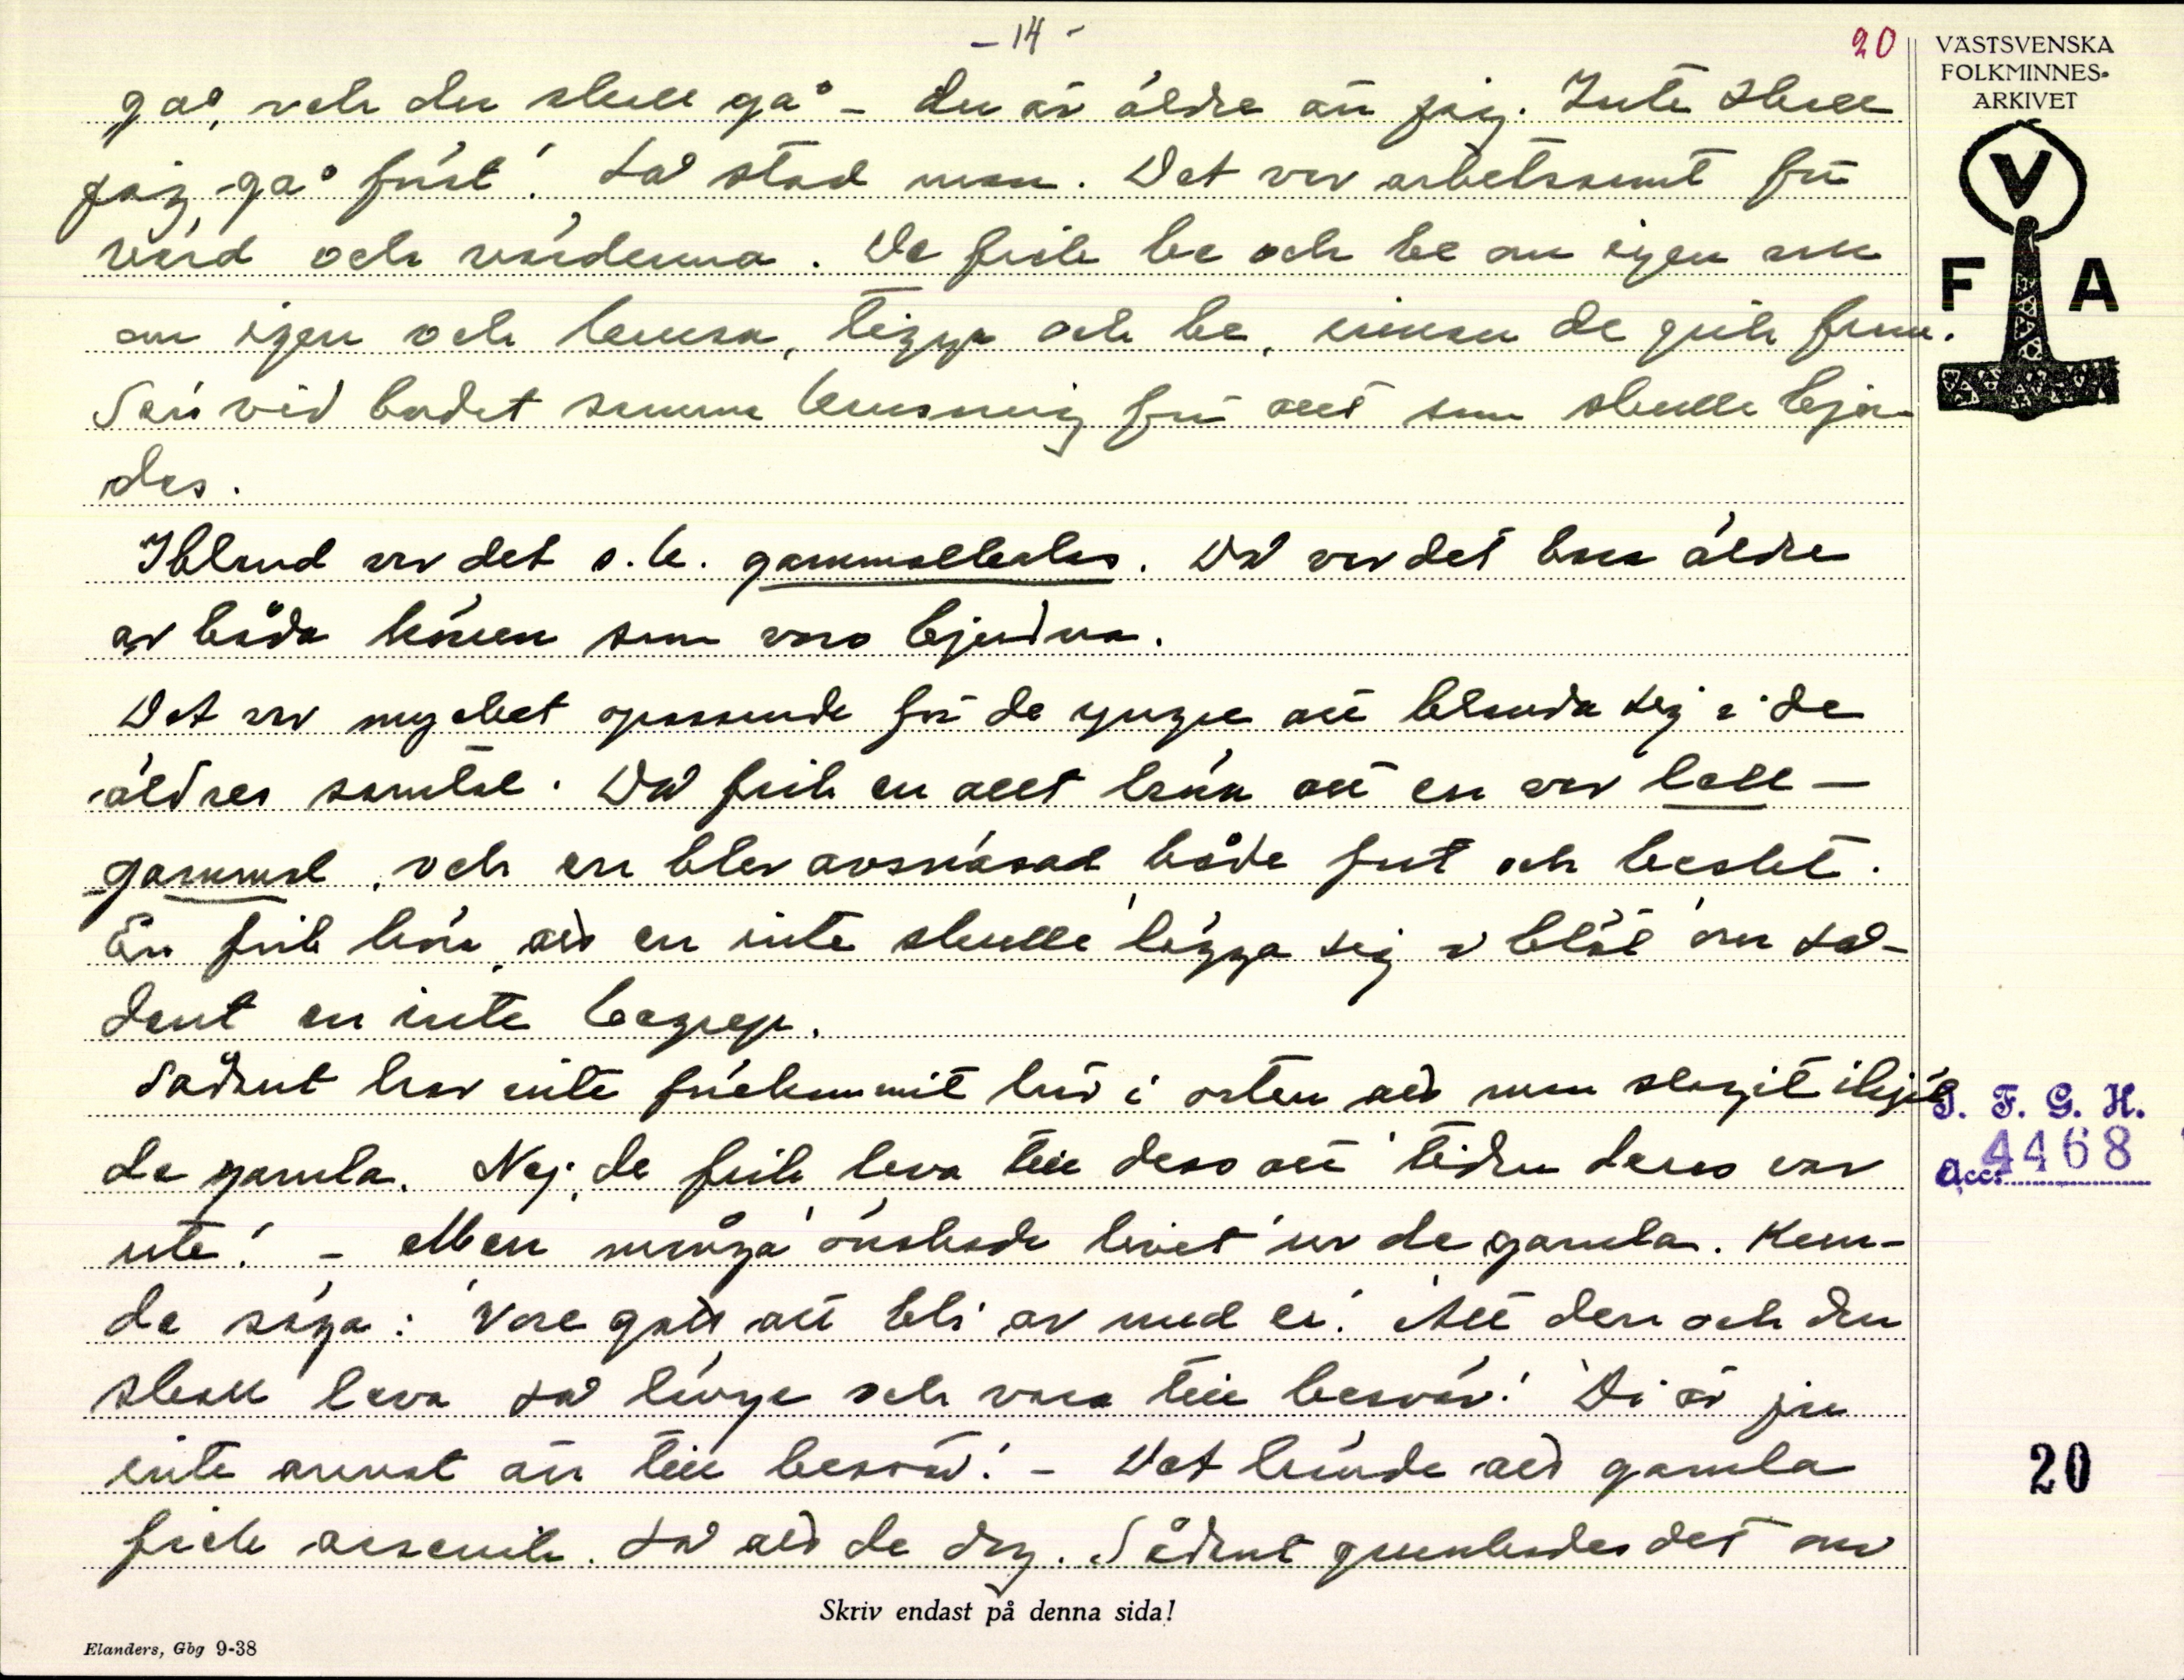 - 14 -
20
VÄSTSVENSKA
FOLKMINNES-
ARKIVET
V
F A
gå, och du skall gå - du är äldre än jag. Inte skall
jag gå först! Så stod man. Det var arbetsamt för
värd och värdinna. De fick be och be om igen och
om igen och krusa, tigga och be, innan de gick fram.
Sen vid bordet samma krusning för allt som skulle bju-
des.
Ibland var det s.k. gammalkalas. Då var det bara äldre
av båda könen som voro bjudna.
Det var mycket opassande för de yngre att blanda sig i de
äldres samtal. Då fick en allt höra att en var lall-
gammal, och en blev avsnäsad både fort och beskt.
En fick höra, att en inte skulle 'lägga sig i blöt' om så-
dant en inte begrep.
Sådant har inte förekommit här i orten att man slagit ihjäl
de gamla. Nej, de fick leva till dess att 'tiden deras var
ute'. - Men många 'önskade livet' ur de gamla. Kun-
de säga: 'Vore gott att bli av med en'. 'Att den och den
skall leva så länge och vara till besvär!' 'Di är ju
inte annat än till besvär'. - Det hände att gamla
fick arsenik. Så att de dog. Sådant grunkades det om
S. F. G. H.
Acc. 4468
20
Skriv endast på denna sida!
Elanders, Gbg 9-38